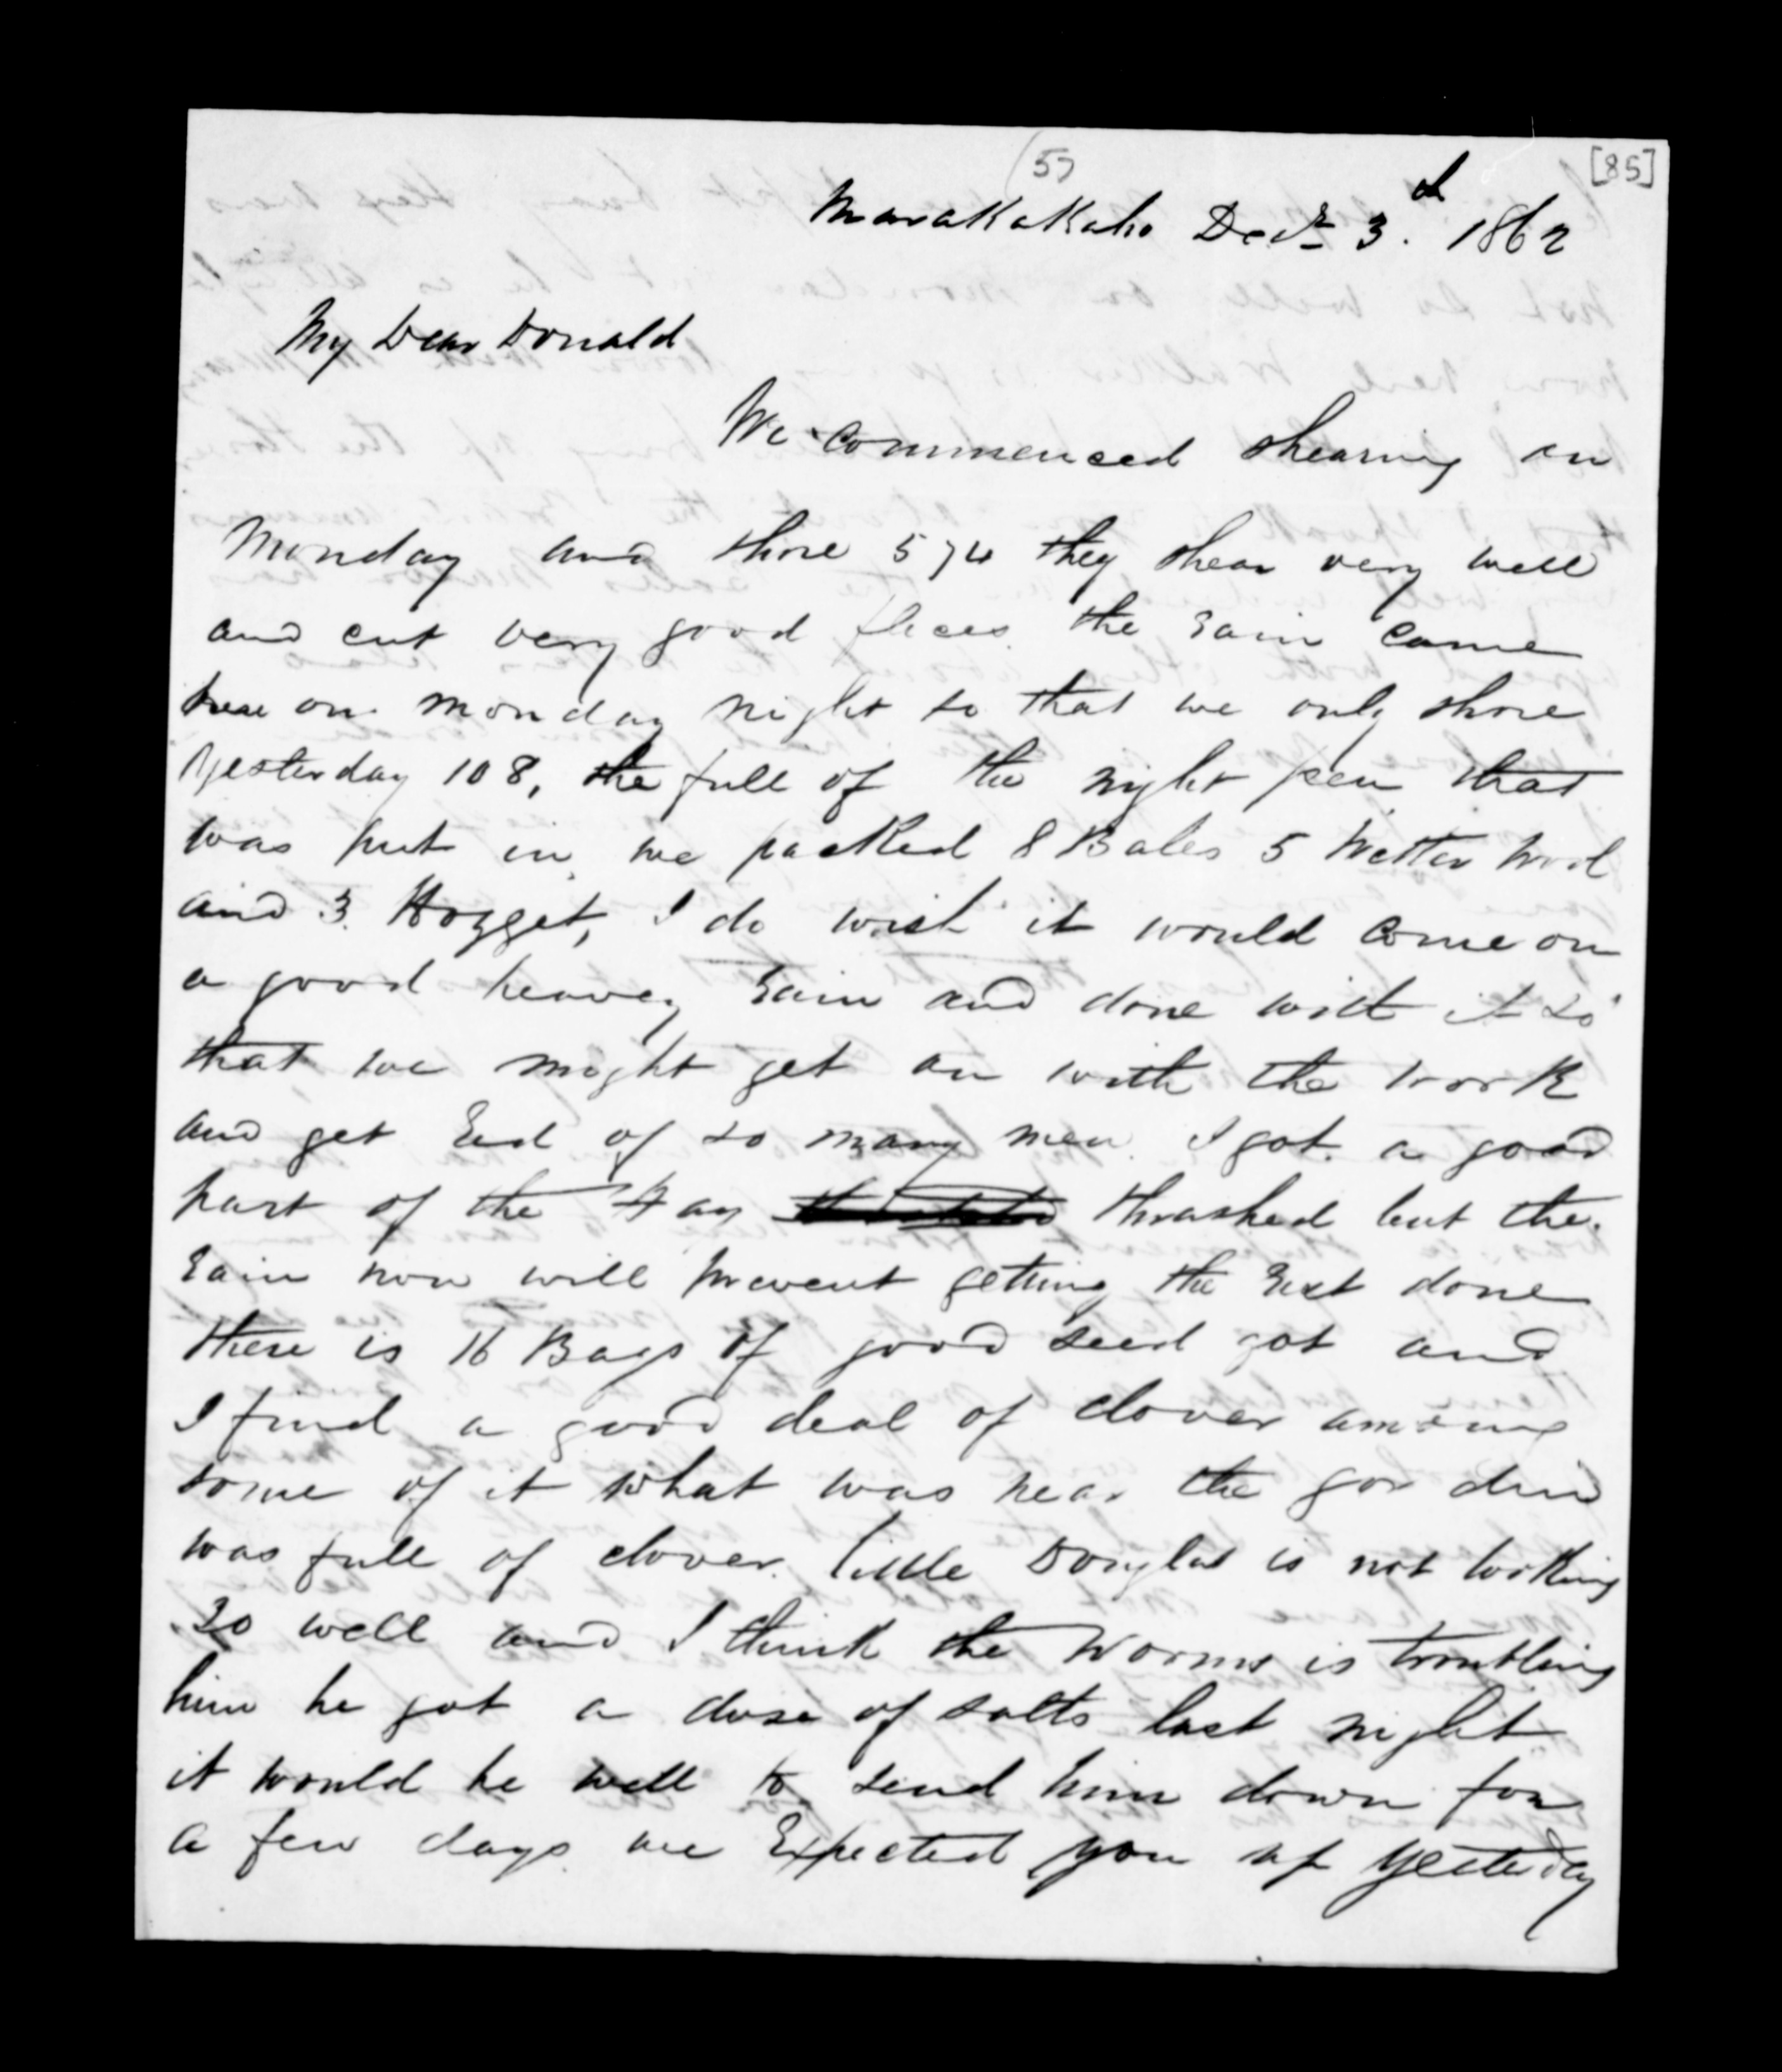 (5)
[85]
Marakakaho Decr 3.d 1862
My Dear Donald
We commenced shearing on
Monday and shore 574 they shear very well
and cut very good fleces the Rain came
here on monday night so that we only shore
yesterday 108, the full of the night pen that
was put in, we packed 8 Bales 5 Wether Wool
and 3. Hogget, I do wish it would come on
a good heavey Rain and done with it so
that we might get on with the work
and get Red of so many men. I got. a good
part of the Hay thrashed but the.
Rain now will prevent getting the Rest done
there is 16 Bags of good seed got and
I find a good deal of clover among
some of it what was near the garden
was full of clover. little Douglas is not looking
so well and I think the Worms is troubling
him he got a dose of salts last night
it would be well to send him down for
a few days we Expected you up yesterday